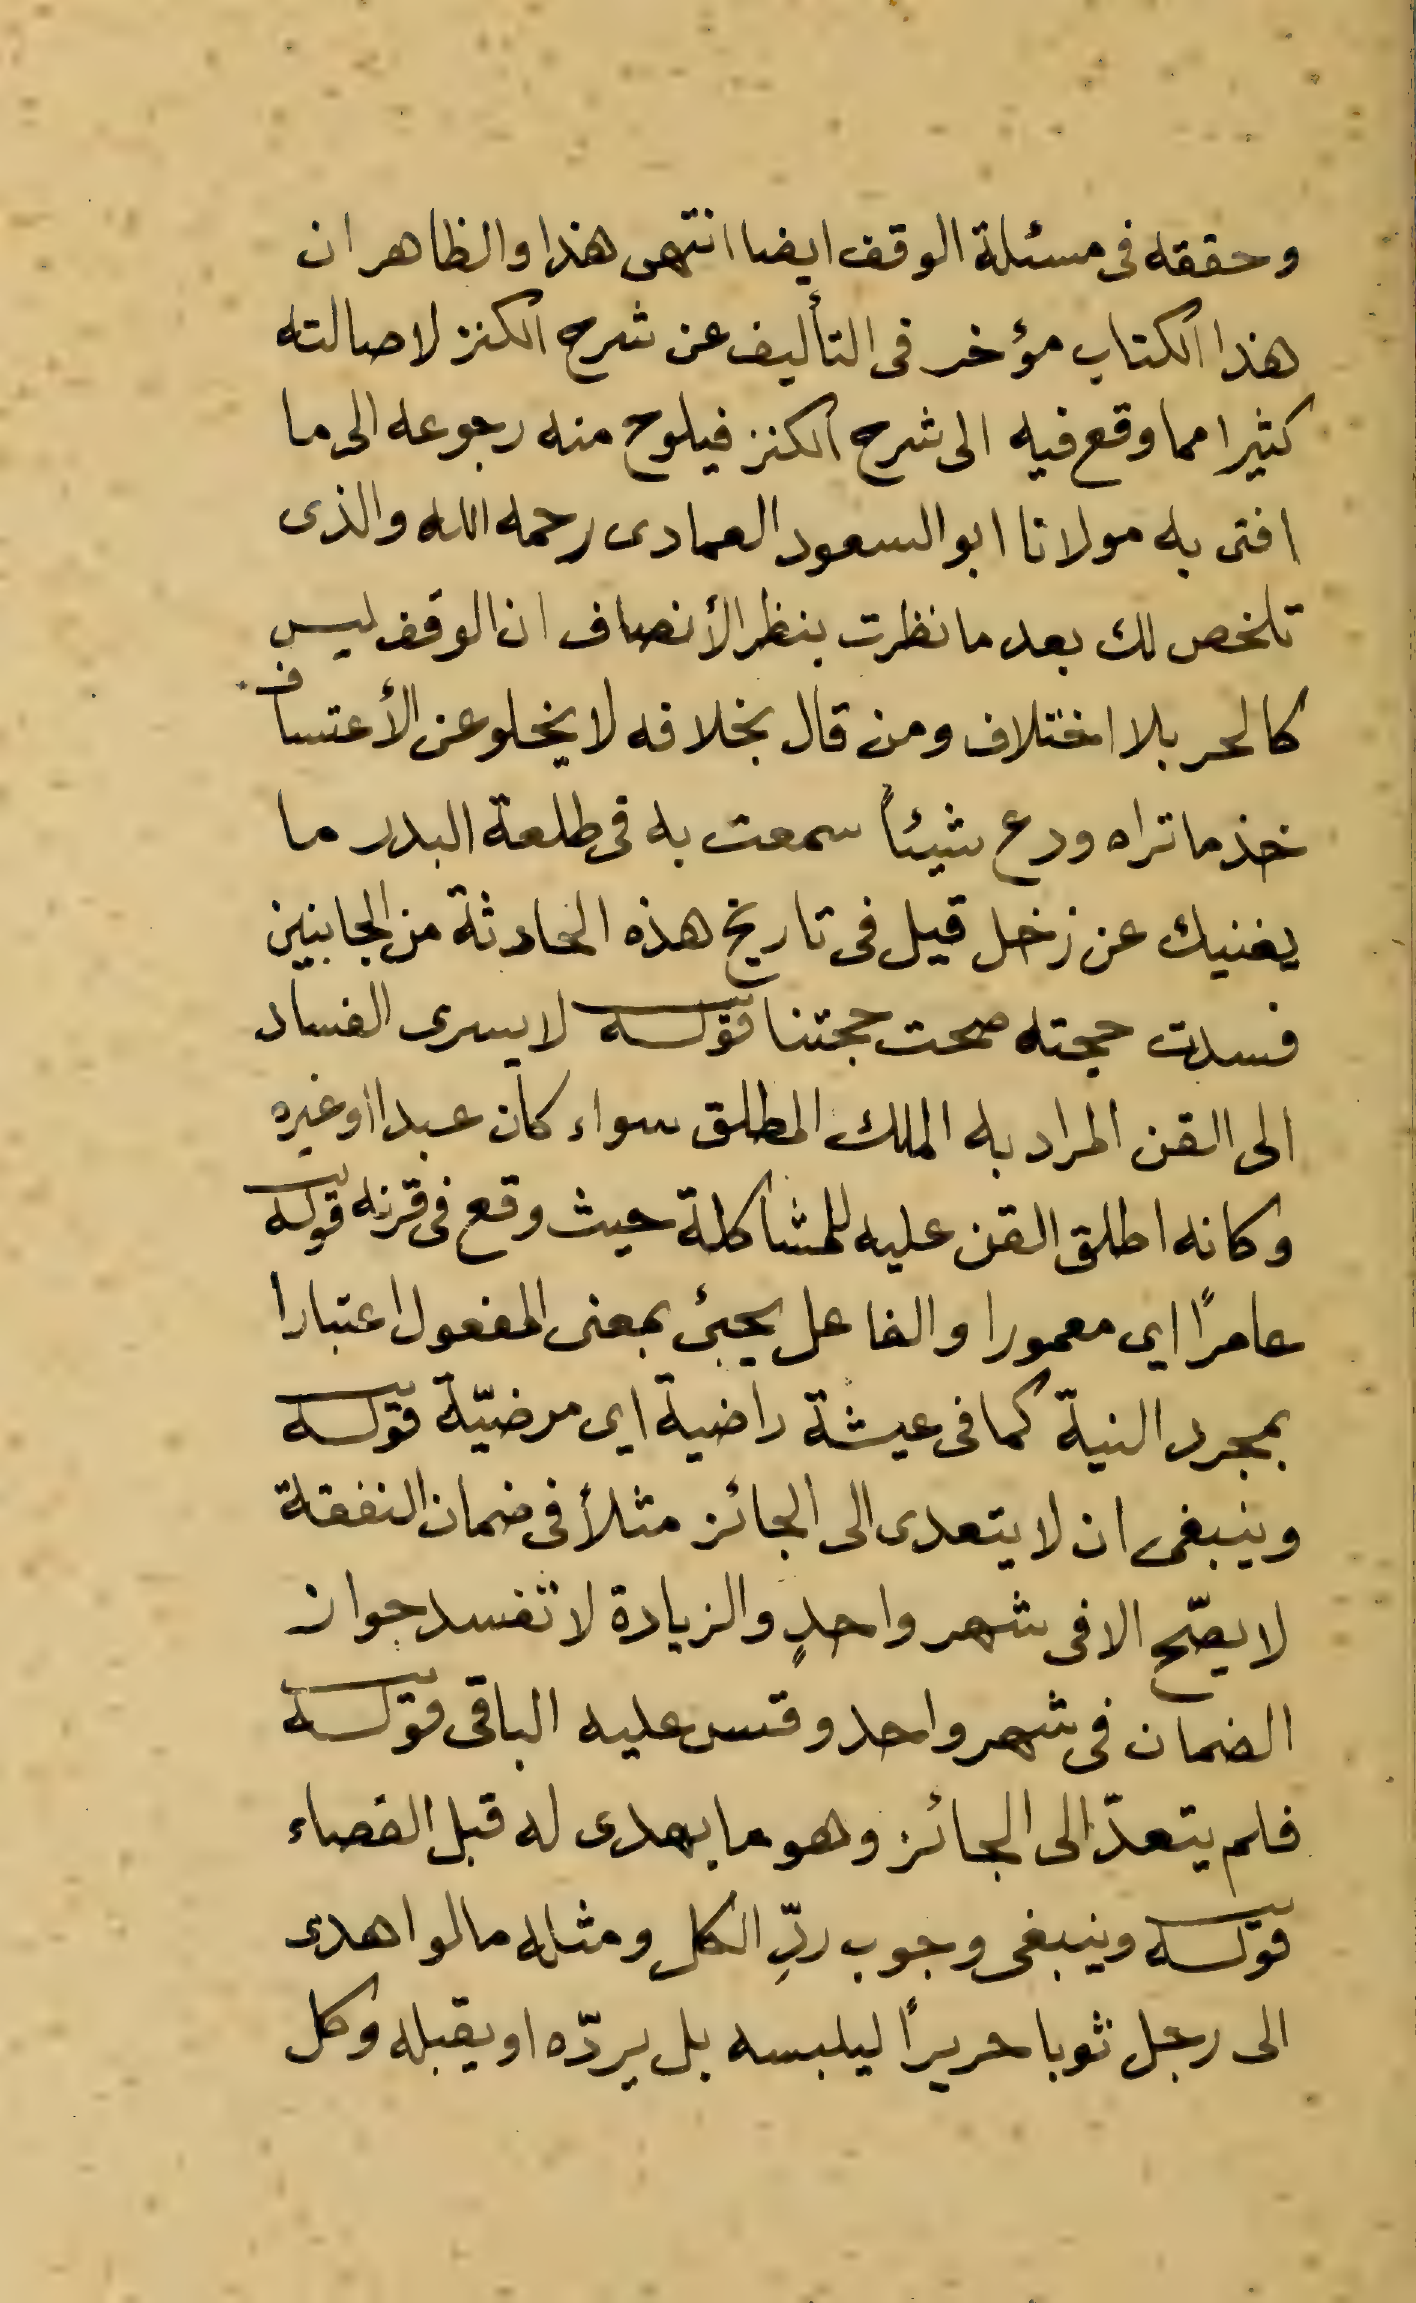 وحققه فى مسئلة الوقف ايضا انتهى هذا والظاهر ان
هذا الكتاب مؤخر فى التأليف عن شرح الكنز لاحالته
كثيرا مما وقع فيه الى شرح الكنز فيلوح منه رجوعه الى ما
افتى به مولانا ابو السعود العمادى رحمه الله والذى
تلخص لك بعد ما نظرت بنظر الأنصاف ان الوقف ليس
كالحر بلا اختلاف ومن قال بخلافه لا يخلو عن الأعتساف
خذ ما تراه ودع شيئاً سمعت به فى طلعة البدر ما
يغنيك عن زحل قيل فى تاريخ هذه الحادثة من الجانبين
فسدت حجته صحت حجتنا قوله لا يسرى الفساد
الى القن المراد به الملك المطلق سواء كان عبدا اوغيره
وكانه اطلق القن عليه للمشاكلة حيث وقع فى قرنه قوله
عامراً اى معمورا والفاعل يجئ بمعنى المفعول اعتبارا
بمجرد النية كما فى عيشة راضية اى مرضيّة قوله
وينبغى ان لا يتعدى الى الجائز مثلأ فى ضمان النفقة
لا يصّح الا فى شهر واحدٍ والزيادة لا تفسد جواز
الضمان فى شهر واحد وقس عليه الباقى قوله
فلم يتعدّ الى الجائز وهو ما يهدى له قبل القضاء
قوله وينبغى وجوب ردِّ الكل ومثله ما لو اهدى
الى رجل ثوبا حريراً ليلبسه بل يردّه او يقبله وكل